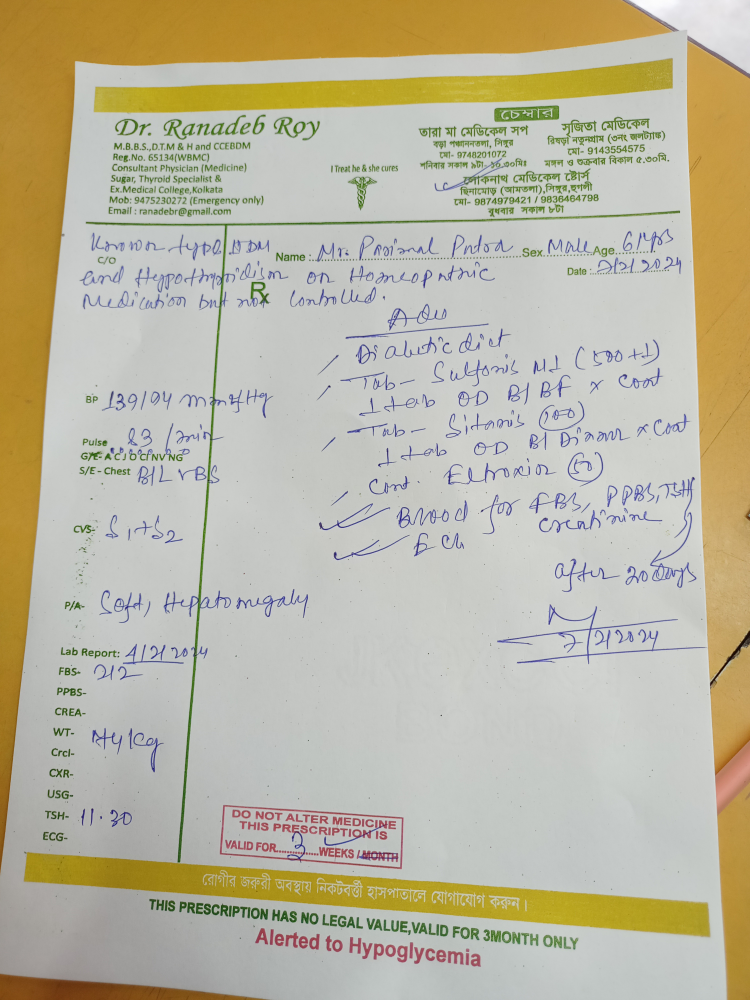 Dr. Ranadeb Roy
M.B.B.S.,D.T.M & H and CCEBDM
Reg.No. 65134(WBMC)
Consultant Physician (Medicine)
Sugar, Thyroid Specialist &
Ex.Medical College,Kolkata
Mob: 9475230272 (Emergency only)
Email : ranadebr@gmail.com
I Treat he & she cures
চেম্বার
তারা মা মেডিকেল সপ
বড়া পঞ্চাননতলা, সিঙ্গুর
মো- 9748201072
শনিবার সকাল ৯টা-১০.৩০মিঃ
সৃজিতা মেডিকেল
রিষড়া নতুনগ্রাম (৩নং জলট্যাঙ্ক)
মো- 9143554575
মঙ্গল ও শুক্রবার বিকাল ৫.৩০মি.
লোকনাথ মেডিকেল ষ্টোর্স
ছিনামোড় (আমতলা),সিঙ্গুর,হুগলী
মো- 9874979421 / 9836464798
বুধবার সকাল ৮টা
Known type II DM
C/O
Name : Mr. Parimal Patra Sex Male Age 61yrs
and Hypothyroidism on Homeopathic
Date : 7/2/2024
Medication but not controlled.
Rx
Adv
Diabetic diet
Tab- Sulfonis M1 (500+1)
1 tab OD B/BF x Cont
Tab- Sitanis (100)
1 tab OD B/ Dinner x Cont
Cont. Eltroxin (50)
Blood for FBS, PPBS, TSH
Creatinine
after 20 days
7/2/2024
BP 139/94 mmHg
Pulse 83 /min
G/E- A C J O Cl NV NG
S/E - Chest B/L VBS
CVS- S1+S2
P/A- Soft, Hepatomegaly
Lab Report: 4/2/2024
FBS- 212
PPBS-
CREA-
WT- Kg
Crcl-
CXR-
USG-
TSH- 11.30
ECG-
DO NOT ALTER MEDICINE
THIS PRESCRIPTION IS
VALID FOR 3 WEEKS / MONTH
রোগীর জরুরী অবস্থায় নিকটবর্ত্তী হাসপাতালে যোগাযোগ করুন।
THIS PRESCRIPTION HAS NO LEGAL VALUE,VALID FOR 3MONTH ONLY
Alerted to Hypoglycemia